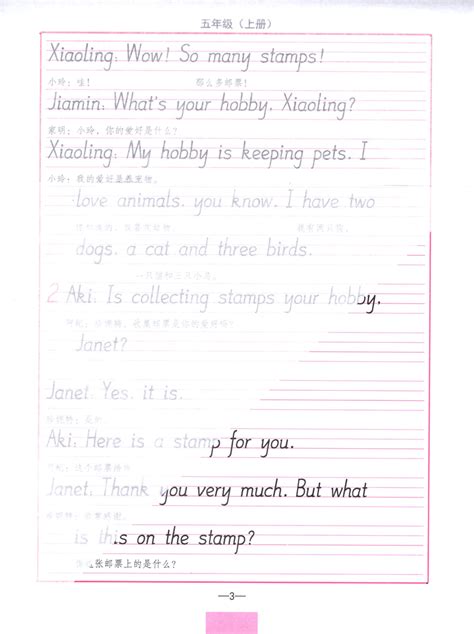 五年级（上册）
Xiaoling: Wow! So many stamps!
小玲：哇！ 那么多邮票！
Jiamin: What's your hobby. Xiaoling?
家明：小玲，你的爱好是什么？
Xiaoling: My hobby is keeping pets. I
小玲：我的爱好是养宠物。
love animals. you know. I have two
dogs. a cat and three birds.
一只猫和三只小鸟。
2 Aki: Is collecting stamps your hobby.
Janet?
Janet: Yes. it is.
Aki: Here is a stamp for you.
Janet: Thank you very much. But what
is this on the stamp?
张邮票上的是什么？
—3—